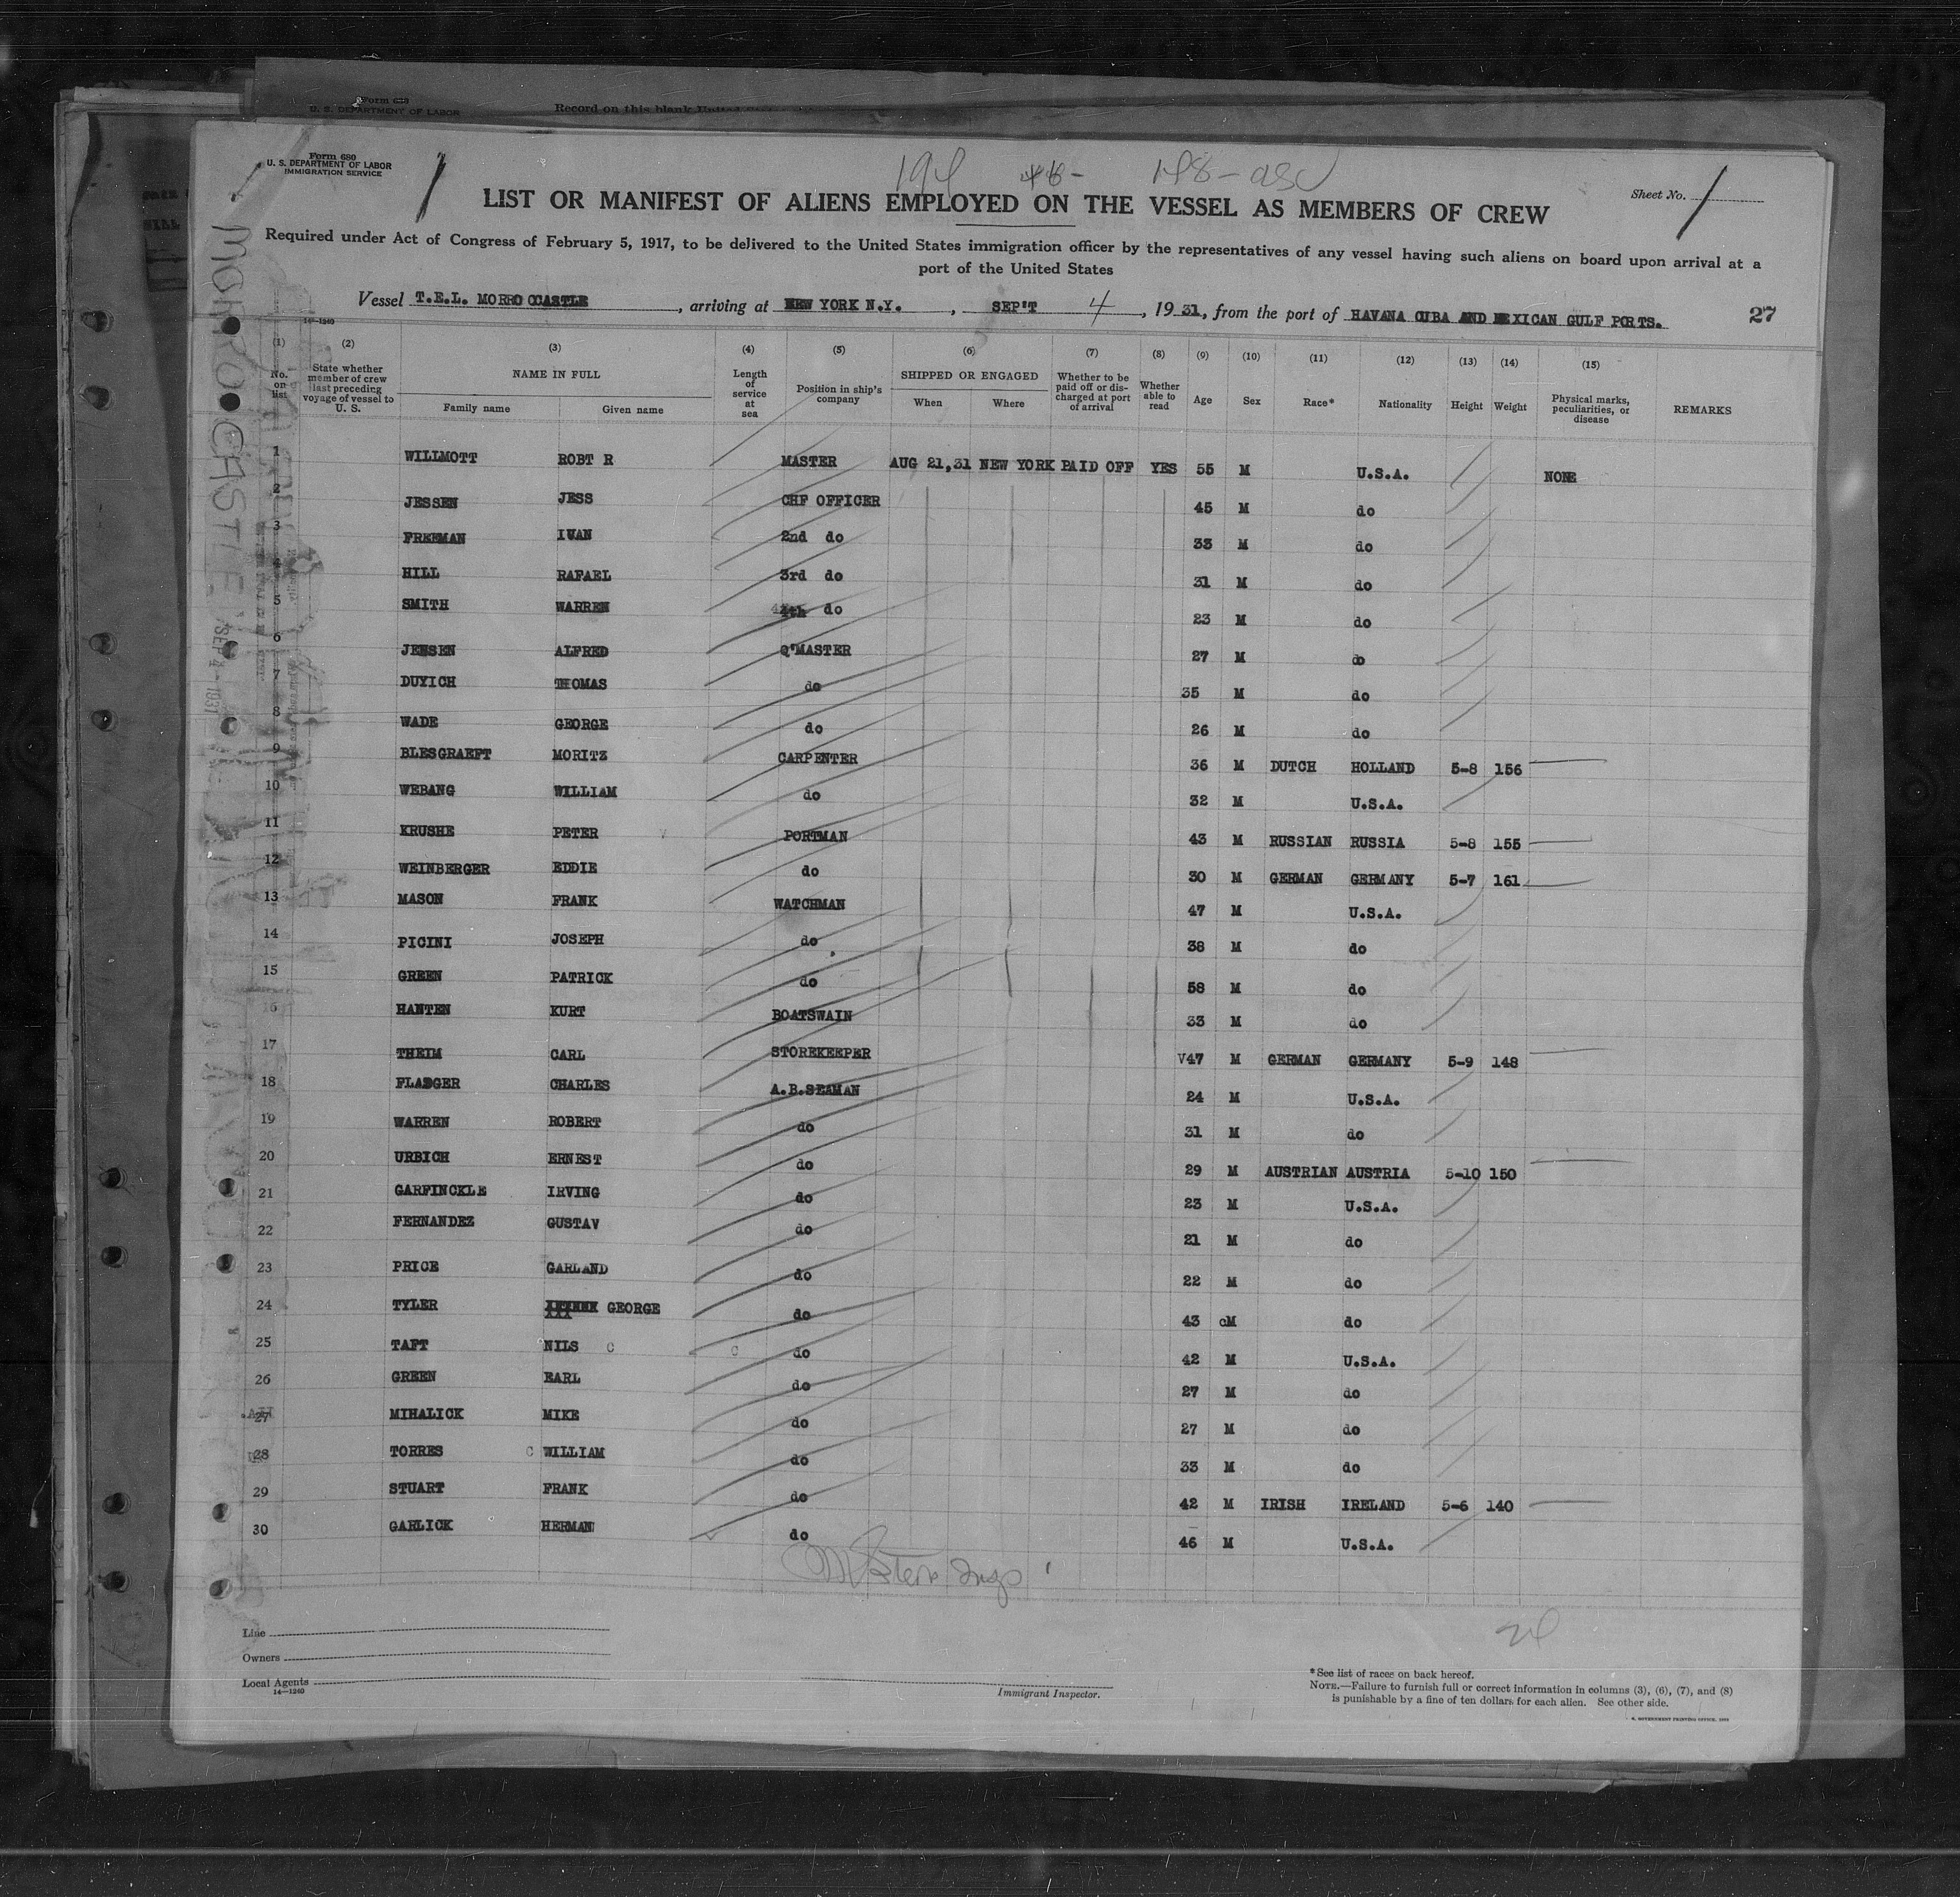 Form 628
U. S. DEPARTMENT OF LABOR
Record on this blank United
Form 680
U. S. DEPARTMENT OF LABOR
IMMIGRATION SERVICE
Sheet No. 1
LIST OR MANIFEST OF ALIENS EMPLOYED ON THE VESSEL AS MEMBERS OF CREW
Required under Act of Congress of February 5, 1917, to be delivered to the United States immigration officer by the representatives of any vessel having such aliens on board upon arrival at a
port of the United States
Vessel T.E.L. MORRO CASTLE, arriving at NEW YORK N.Y., SEP'T 4, 1931, from the port of HAVANA CUBA AND MEXICAN GULF PORTS. 27
MORRO CASTLE
SEP 4 - 1931
14-1240
(1) (2) (3) (4) (5) (6) (7) (8) (9) (10) (11) (12) (13) (14) (15)
No. on list
State whether member of crew last preceding voyage of vessel to U. S.
NAME IN FULL
Family name Given name
Length of service at sea
Position in ship's company
SHIPPED OR ENGAGED
When Where
Whether to be paid off or discharged at port of arrival
Whether able to read
Age Sex Race* Nationality Height Weight
Physical marks, peculiarities, or disease
REMARKS
1 WILLMOTT ROBT R MASTER AUG 21,31 NEW YORK PAID OFF YES 55 M U.S.A. NONE
2 JESSEN JESS CHF OFFICER 45 M do
3 FREEMAN IVAN 2nd do 33 M do
4 HILL RAFAEL 3rd do 31 M do
5 SMITH WARREN 4th do 23 M do
6 JENSEN ALFRED Q'MASTER 27 M do
7 DUYICH THOMAS do 35 M do
8 WADE GEORGE do 26 M do
9 BLESGRAEFT MORITZ CARPENTER 36 M DUTCH HOLLAND 5-8 156
10 WEBANG WILLIAM do 32 M U.S.A.
11 KRUSHE PETER PORTMAN 43 M RUSSIAN RUSSIA 5-8 155
12 WEINBERGER EDDIE do 30 M GERMAN GERMANY 5-7 161
13 MASON FRANK WATCHMAN 47 M U.S.A.
14 PICINI JOSEPH do 38 M do
15 GREEN PATRICK do 58 M do
16 HANTEN KURT BOATSWAIN 33 M do
17 THEIM CARL STOREKEEPER V47 M GERMAN GERMANY 5-9 148
18 FLADGER CHARLES A.B.SEAMAN 24 M U.S.A.
19 WARREN ROBERT do 31 M do
20 URBICH ERNEST do 29 M AUSTRIAN AUSTRIA 5-10 150
21 GARFINCKLE IRVING do 23 M U.S.A.
22 FERNANDEZ GUSTAV do 21 M do
23 PRICE GARLAND do 22 M do
24 TYLER GEORGE do 43 cM do
25 TAFT NILS C C do 42 M U.S.A.
26 GREEN EARL do 27 M do
27 MIHALICK MIKE do 27 M do
28 TORRES C WILLIAM do 33 M do
29 STUART FRANK do 42 M IRISH IRELAND 5-6 140
30 GARLICK HERMAN do 46 M U.S.A.
Line
Owners
Local Agents
14-1240
Immigrant Inspector.
*See list of races on back hereof.
NOTE.—Failure to furnish full or correct information in columns (3), (6), (7), and (8)
is punishable by a fine of ten dollars for each alien. See other side.